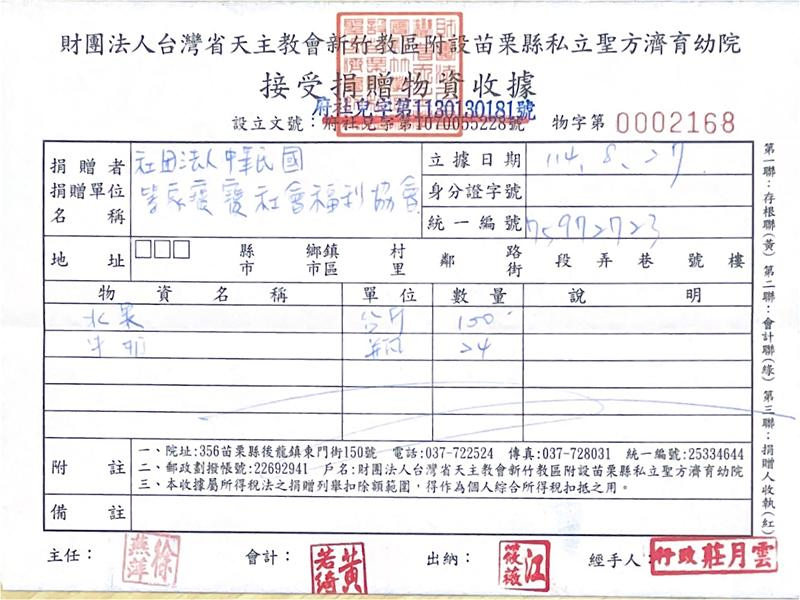 財團法人台灣省天主教會新竹教區附設苗栗縣私立聖方濟育幼院
接受捐贈物資收據
府社兒字第1130130181號
設立文號：府社兒字第1070055228號 物字第 0002168
捐贈者
捐贈單位
名稱
社團法人中華民國
社會福利協會
立據日期 114.8.27
身分證字號
統一編號 75972723
地址 □□□ 縣市 鄉鎮市區 村里 鄰 路街 段 弄 巷 號 樓
物資名稱 單位 數量 說明
水果 公斤 100
牛奶 瓶 24
附註
一、院址:356苗栗縣後龍鎮東門街150號 電話:037-722524 傳真:037-728031 統一編號:25334644
二、郵政劃撥帳號:22692941 戶名:財團法人台灣省天主教會新竹教區附設苗栗縣私立聖方濟育幼院
三、本收據屬所得稅法之捐贈列舉扣除額範圍，得作為個人綜合所得稅扣抵之用。
備註
主任： 徐燕萍 會計： 黃若綺 出納： 江筱薇 經手人： 行政莊月雲
第一聯：存根聯(黃) 第二聯：會計聯(綠) 第三聯：捐贈人收執(紅)